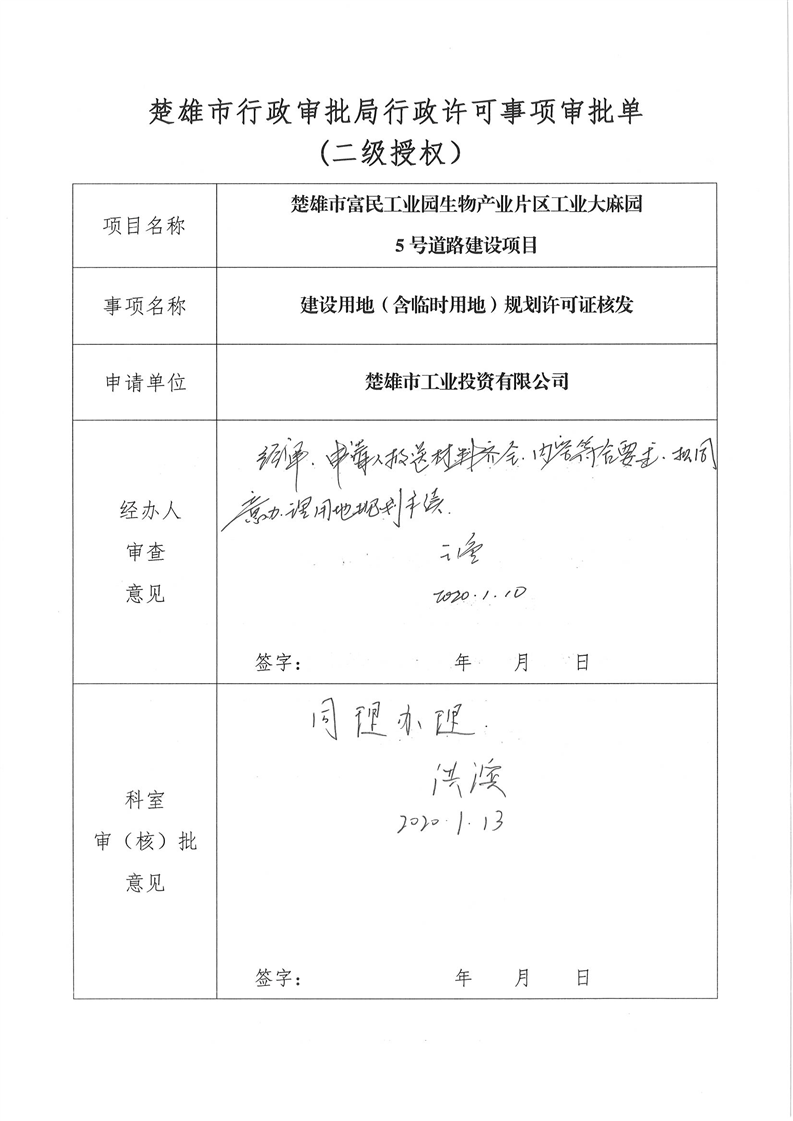 楚雄市行政审批局行政许可事项审批单
(二级授权)
项目名称
楚雄市富民工业园生物产业片区工业大麻园
5号道路建设项目
事项名称
建设用地(含临时用地)规划许可证核发
申请单位
楚雄市工业投资有限公司
经办人
审查
意见
经审、申请人报送材料齐全、内容符合要求、拟同
意办理用地规划手续.
2020.1.10
签字: 年 月 日
科室
审(核)批
意见
同理办理.
洪滨
2020.1.13
签字: 年 月 日